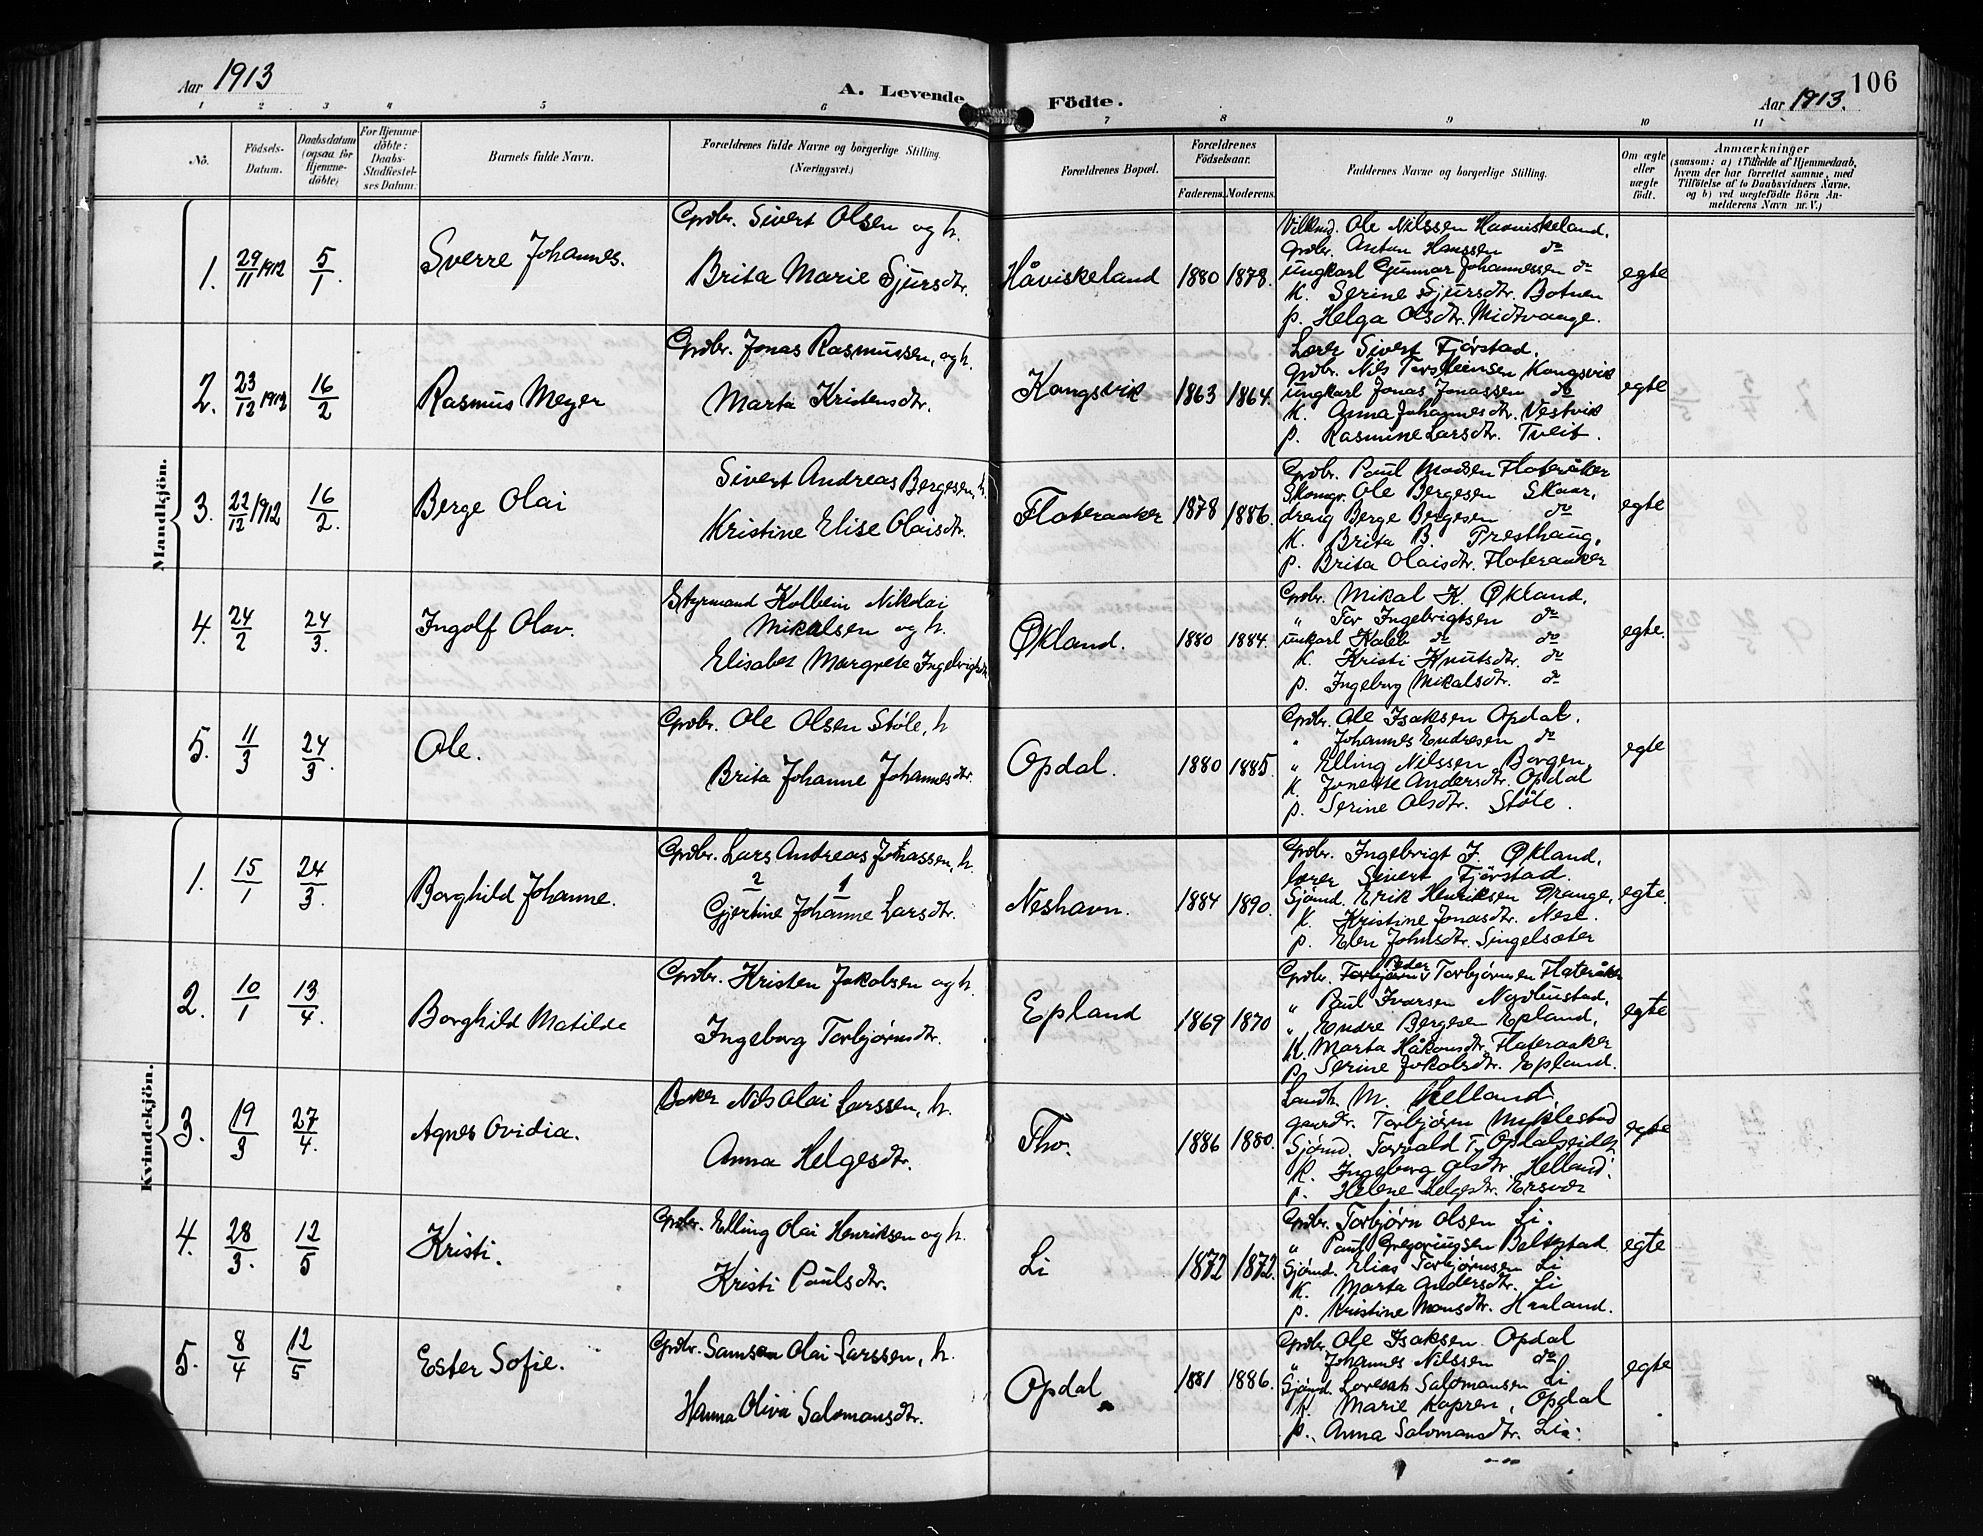 Aar 1913
A. Levende Födte.
Aar 1913.
106
1 2 3 4 5 6 7 8 9 10 11
No.
Födsels-Datum.
Daabsdatum (ogsaa for Hjemme-döbte)
For Hjemme-döbte: Daabs-Stadfæstel-ses Datum.
Barnets fulde Navn.
Forældrenes fulde Navne og borgerlige Stilling. (Næringsvei.)
Forældrenes Bopæl.
Forældrenes Födselsaar.
Faderens. Moderens.
Faddernes Navne og borgerlige Stilling.
Om ægte eller uægte födt.
Anmærkninger
(saasom: a) i Tilfælde af Hjemmedaab, hvem der har forrettet samme, med Tilföielse af to Daabsvidners Navne, og b) ved uegtefödte Börn An-melderens Navn m. V.)
Mandkjön.
1. 29/11 1912 5/1. Sverre Johannes.
Grdbr. Sivert Olsen og h.
Brita Marie Sjursdtr.
Håviskeland 1880 1878.
Grdbr. Anton Hanssen do
ungkarl Gunnar Johannessen do
K. Serine Sjursdtr. Botnen
p. Helga Olsdtr. Midtvange.
egte
2. 23/12 1912 16/2 Rasmus Meyer
Grdbr. Jonas Rasmussen, og h.
Marta Kristensdtr.
Kongsvik 1863 1864.
Lærer Sivert Fjörstad.
Grdbr. Nils Torsteinsen Kongsvik
ungkarl Jonas Jonassen do
K. Anna Johannesdtr. Vestvik
p. Rasmine Larsdtr. Tveit.
egte
3. 22/12 1912 16/2. Berge Olai
Sivert Andreas Bergesen, h.
Kristine Elise Olaisdtr.
Flateraaker 1878 1886.
Grdbr. Paul Madsen Flateråker
Skomgr. Ole Bergesen Skaar,
dreng Berge Bergesen do
K. Brita B. Presthaug.
p. Brita Olaisdtr. Flateraaker
egte
4. 24/2 24/3. Ingolf Olav.
Styrmand Kolbein Nikolai
Mikalsen og h.
Elisabet Margrete Ingebrigtsdtr
Økland. 1880 1884.
Grdbr. Mikal K. Økland,
" Tor Ingebrigtsen do
unkarl Kaleb do do
K. Kristi Knutsdtr. do
p. Ingeborg Mikalsdtr. do
egte.
5. 11/3 24/3. Ole.
Grdbr. Ole Olsen Støle, h
Brita Johanne Johannesdtr.
Opdal. 1880 1885.
Grdbr. Ole Isaksen Opdal.
" Johannes Endresen do
" Elling Nilssen Borgen,
K. Jonette Andersdtr. Opdal
p. Serine Olsdtr. Støle.
egte
Kvindekjön.
1. 15/1 24/3. Borghild Johanne.
Grdbr. Lars Andreas Johassen, h.
2 1
Gjertine Johanne Larsdtr.
Neshavn. 1884 1890.
Grdbr. Ingebrigt J. Økland,
lærer Sivert Fjörstad.
Sjömd. Erik Henriksen Drange,
K. Kristine Jonasdtr. Nese.
p. Elen Johnsdtr. Singelsæter
egte.
2. 10/1 13/4. Borghild Matilde
Grdbr. Kristen Jakobsen og h.
Ingeborg Torbjørnsdtr.
Epland 1869 1870
Grdbr. Torbjørn Peder Torbjørnsen Flateråker
" Paul Ivarsen Nordhustad,
" Endre Bergesen Epland,
K. Marta Håkonsdtr. Flateraaker
p. Serine Jakobsdtr. Epland.
egte
3. 19/3 27/4. Agnes Ovidia.
Baker Nils Olai Larssen, h.
Anna Helgesdtr.
Tho. 1886 1880.
Landh. M. Helland,
gaardr. Torbjørn Myklestad
Sjömd. Torvald T. Opdalseidet
K. Ingeborg Olsdtr. Helland.
p. Helene Helgesdtr. Ersvær
egte
4. 28/3. 12/5 Kristi.
Grdbr. Elling Olai Henriksen og h.
Kristi Paulsdtr.
Li 1872 1872.
Grdbr. Torbjørn Olsen Li.
" Paul Gregoriussen Belstad
Sjömd. Elias Torbjørnsen Li
K. Marta Andersdtr. Li
p. Kristine Monsdtr. Haaland.
egte
5. 8/4 12/5 Ester Sofie.
Grdbr. Samson Olai Larssen, h.
Hanna Oliva Salomonsdtr.
Opdal 1881 1886.
Grdbr. Ole Isaksen Opdal
" Johannes Nilssen do
Sjömd. Lorents Salomonsen Li
K. Marie Opdal
p. Anna Salomonsdtr. Li.
egte